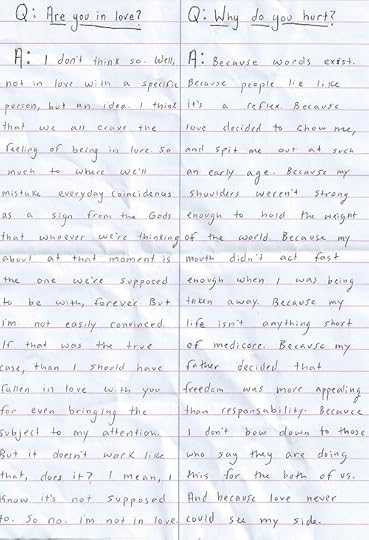 Q: Are you in love?
A: I don't think so. Well,
not in love with a specific
person, but an idea. I think
that we all crave the
feeling of being in love. So
much to where we'll
mistake everyday coincidenus
as a sign from the Gods
that whoever we're thinking
about at that moment is
the one we're supposed
to be with, forever. But
I'm not easily convinced.
If that was the true
case, than I should have
fallen in love with you
for even bringing the
subject to my attention.
But it doesn't work like
that, does it? I mean, I
know it's not supposed
to. So no. I'm not in love.
Q: Why do you hurt?
A: Because words exist.
Because people lie like
it's a reflex. Because
love decided to chew me,
and spit me out at such
an early age. Because my
shoulders weren't strong
enough to hold the weight
of the world. Because my
mouth didn't act fast
enough when I was being
taken away. Because my
life isn't anything short
of medicore. Because my
father decided that
freedom was more appealing
than responsability. Because
I don't bow down to those
who say they are doing
this for the both of us.
And because love never
could see my side.